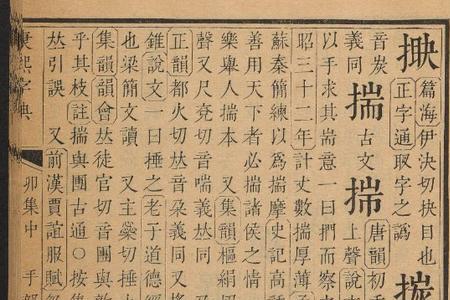 篇海伊決切抉目也
正字通取字之譌
音炭
義同
揣
古文
揣
唐韻初
上聲說
以手求其耑意一曰捫而察
昭三十二年計丈數揣厚薄
蘇秦簡練以爲揣摩史記高
善用天下者必揣諸侯之情
樂舉人揣本 又集韻樞絹
聲又尺兗切音喘義𠀤同 又
正韻都火切𠀤音朶義同又
錐說文一曰捶之老子道德經
也梁簡文讀 又主蘂切
集韻韻會𠀤徒官切音團與
乎其枝註揣與團古通○按集
𠀤引誤 又前漢賈誼服賦
康熙字典 卯集中 手部